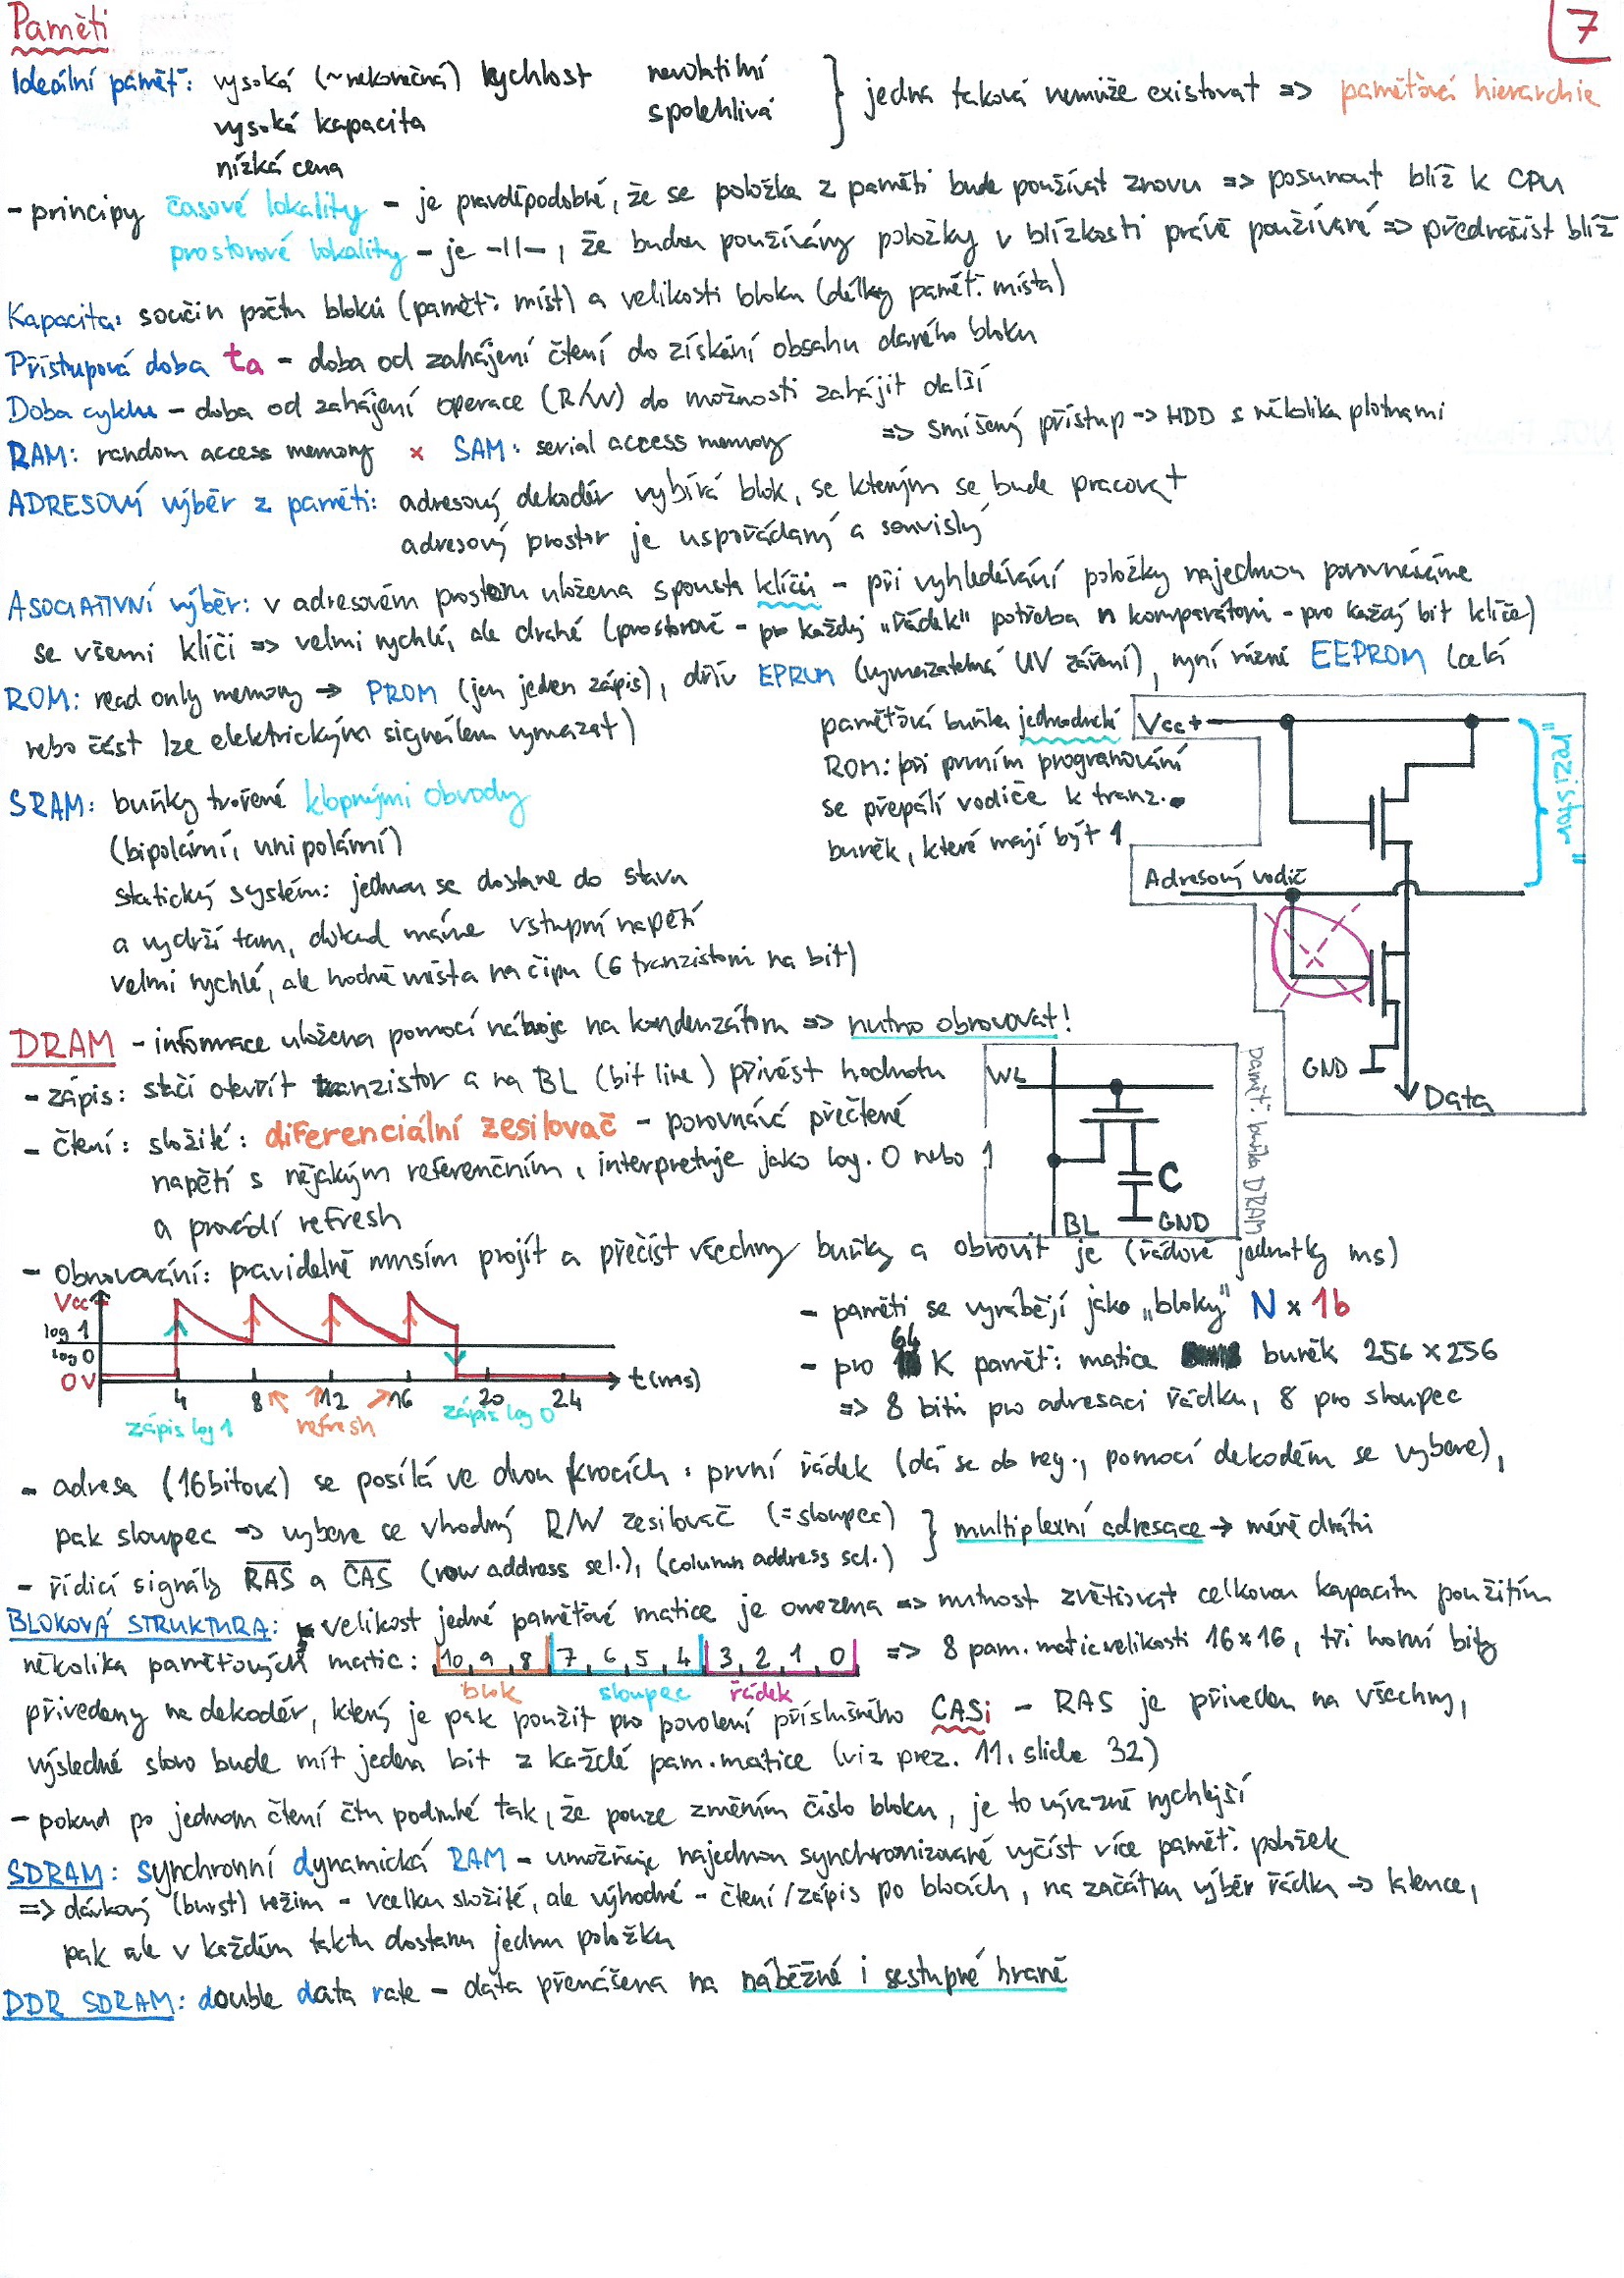 Paměti
7
Ideální paměť: vysoká (~nekonečná) rychlost nevolatilní
vysoká kapacita spolehlivá
nízká cena
} jedna taková nemůže existovat => paměťová hierarchie
- principy časové lokality - je pravděpodobné, že se položka z paměti bude používat znovu => posunout blíž k CPU
prostorové lokality - je -||-, že budou používány položky v blízkosti právě používané => přednačíst blíž
Kapacita: součin počtu bloků (paměť. míst) a velikosti bloku (délky paměť. místa)
Přístupová doba ta - doba od zahájení čtení do získání obsahu daného bloku
Doba cyklu - doba od zahájení operace (R/W) do možnosti zahájit další
RAM: random access memory x SAM: serial access memory => smíšený přístup -> HDD s několika plotnami
ADRESOVÝ výběr z paměti: adresový dekodér vybírá blok, se kterým se bude pracovat
adresový prostor je uspořádaný a souvislý
ASOCIATIVNÍ výběr: v adresovém prostoru uložena spousta klíčů - při vyhledávání položky najednou porovnáváme
se všemi klíči => velmi rychlé, ale drahé (prostorově - pro každý „řádek" potřeba n komparátorů - pro každý bit klíče)
ROM: read only memory -> PROM (jen jeden zápis), dřív EPROM (vymazatelná UV záření), nyní různé EEPROM (celá
nebo část lze elektrickým signálem vymazat)
paměťová buňka jednoduché
ROM: při prvním programování
se přepálí vodiče k tranz.
buněk, které mají být 1
Vcc+
"rezistor"
Adresový vodič
GND
Data
SRAM: buňky tvořené klopnými obvody
(bipolární, unipolární)
statický systém: jednou se dostane do stavu
a vydrží tam, dokud máme vstupní napětí
velmi rychlé, ale hodně místa na čipu (6 tranzistorů na bit)
DRAM - informace uložena pomocí náboje na kondenzátoru => nutno obnovovat!
- zápis: stačí otevřít tranzistor a na BL (bit line) přivést hodnotu
- čtení: složité: diferenciální zesilovač - porovnává přečtené
napětí s nějakým referenčním, interpretuje jako log. 0 nebo 1
a provádí refresh
WL
C
BL
GND
paměť. buňka DRAM
- Obnovování: pravidelně musím projít a přečíst všechny buňky a obnovit je (řádově jednotky ms)
Vcc
log 1
log 0
0V
4 8 12 16 20 24 t(ms)
zápis log 1 refresh zápis log 0
- paměti se vyrábějí jako „bloky" N x 1b
- pro 64 K paměť: matice buněk 256 x 256
=> 8 bitů pro adresaci řádku, 8 pro sloupec
- adresa (16bitová) se posílá ve dvou krocích: první řádek (dá se do reg., pomocí dekodéru se vybere),
pak sloupec => vybere se vhodný R/W zesilovač (=sloupec) } multiplexní adresace -> méně drátů
- řídicí signály RAS a CAS (row address sel.), (column address sel.)
BLOKOVÁ STRUKTURA: velikost jedné paměťové matice je omezena => nutnost zvětšovat celkovou kapacitu použitím
několika paměťových matic: 10 9 8 7 6 5 4 3 2 1 0 => 8 pam. matic velikosti 16x16, tři horní bity
blok sloupec řádek
přivedeny na dekodér, který je pak použit pro povolení příslušného CASi - RAS je přiveden na všechny,
výsledné slovo bude mít jeden bit z každé pam. matice (viz prez. 11, slide 32)
- pokud po jednom čtení čtu podruhé tak, že pouze změním číslo bloku, je to výrazně rychlejší
SDRAM: synchronní dynamická RAM - umožňuje najednou synchronizované vyčíst více paměť. položek
=> dávkový (burst) režim - vcelku složité, ale výhodné - čtení/zápis po blocích, na začátku výběr řádku -> latence,
pak ale v každém taktu dostanu jednu položku
DDR SDRAM: double data rate - data přenášena na náběžné i sestupné hraně